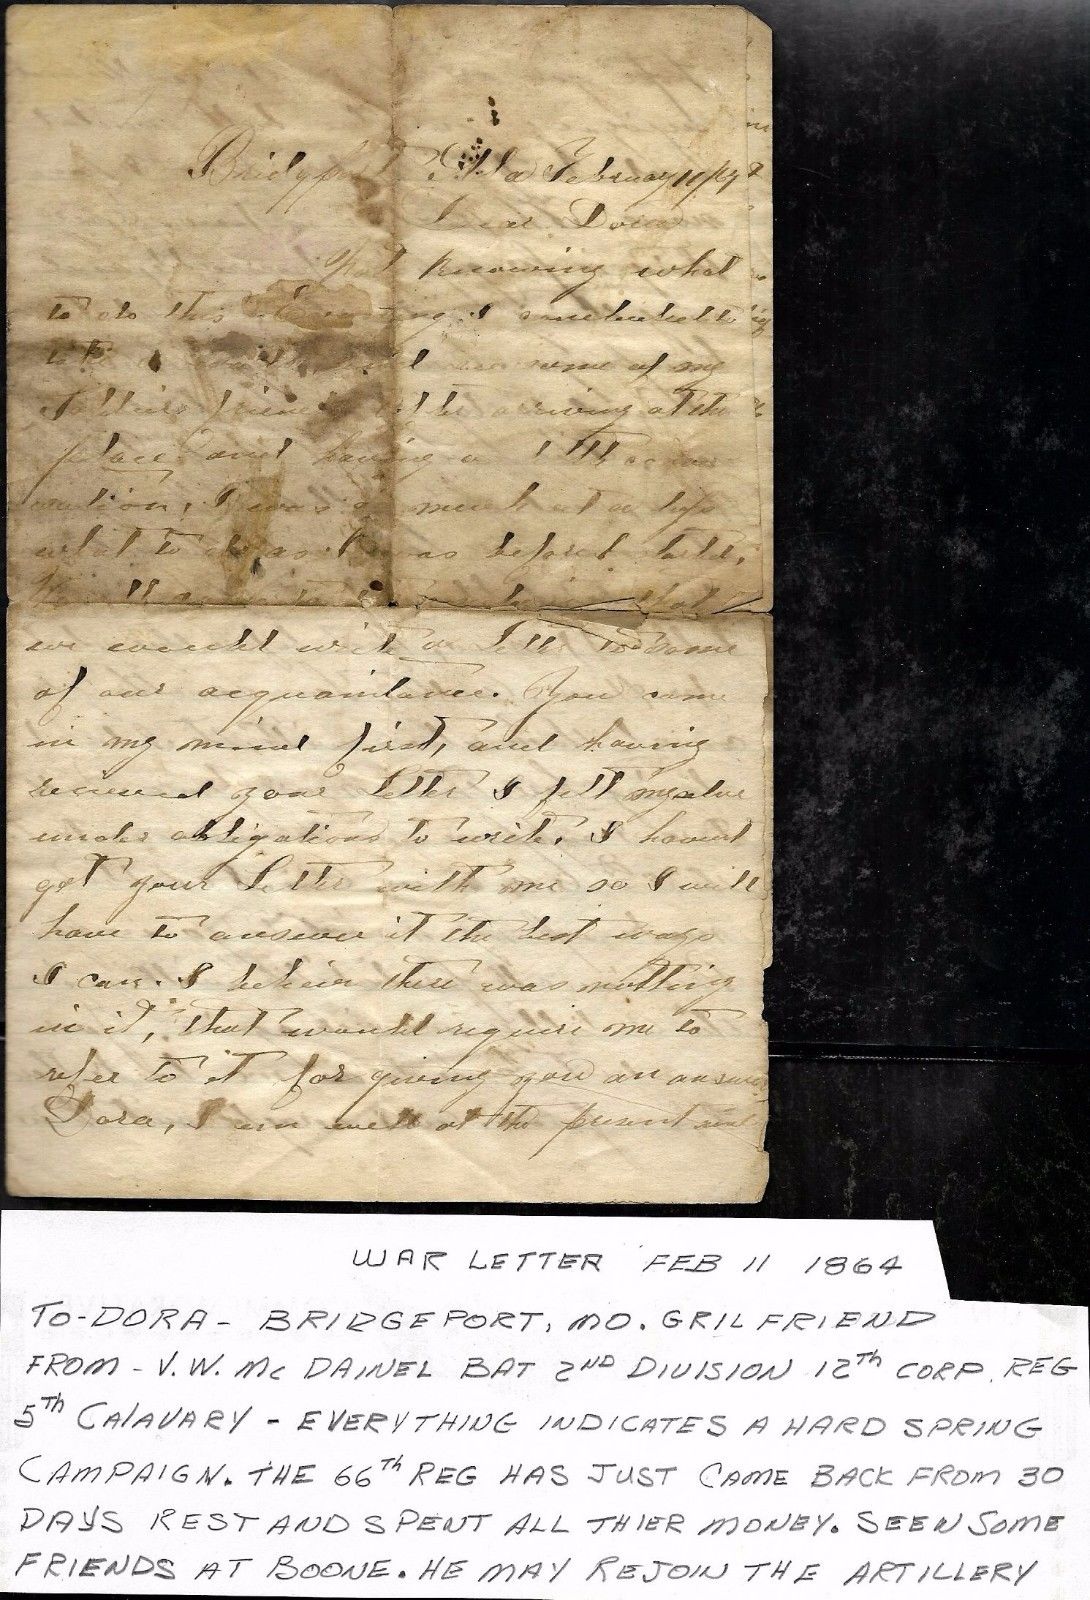 Bridgeport Ala February 11
Dear Dora
Not knowing what
to do this I concluded to
some of my
Soldiers friends after arriving at the
place and having a little
I was as much at a loss
what to do as I was before
that
we would write a letter to some
of our acquaintance. You came
in my mind first, and having
received your letter I felt myselve
under obligations to write. I havent
got your letter with me so I will
have to answer it the best ways
I can. I believe there was nothing
in it, that would require me to
refer to it for giving you an answer
Dora, I am well at the present
WAR LETTER FEB 11 1864
TO-DORA - BRIDGEPORT, MO. GRILFRIEND
FROM - V.W. Mc DAINEL BAT 2ND DIVISION 12th CORP. REG
5th CALAVARY - EVERYTHING INDICATES A HARD SPRING
CAMPAIGN. THE 66th REG HAS JUST CAME BACK FROM 30
DAYS REST AND SPENT ALL THIER MONEY. SEEN SOME
FRIENDS AT BOONE. HE MAY REJOIN THE ARTILLERY